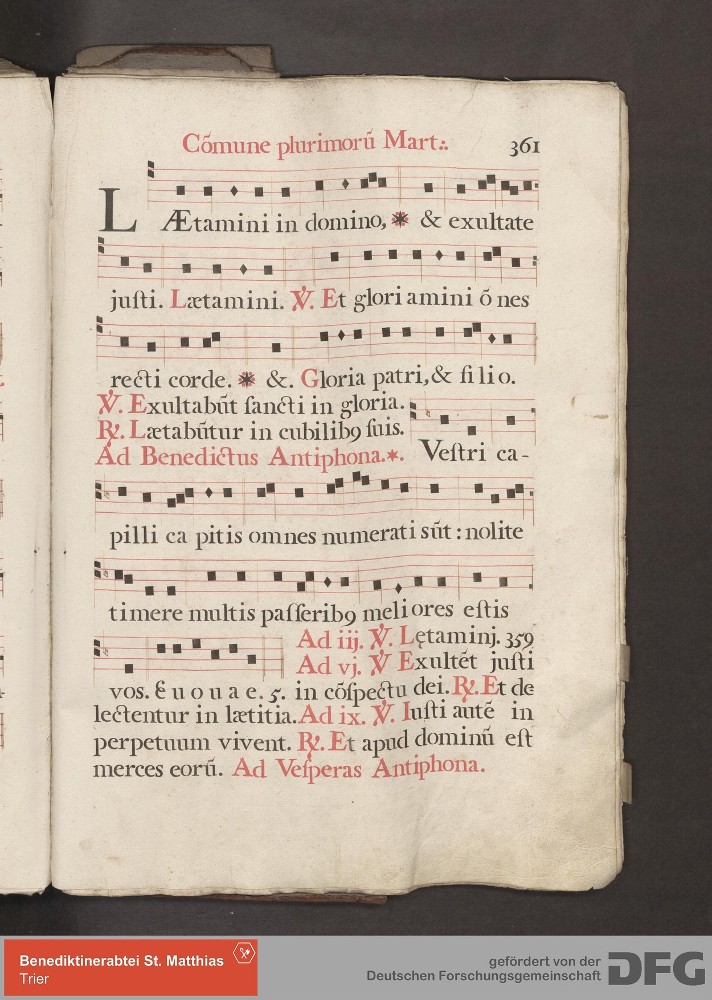 Cõmune plurimorũ Mart.:. 361
LÆtamini in domino, ✱ & exultate
juſti. Lætamini. ℣. Et gloriamini õnes
recti corde. ✱ &. Gloria patri, & filio.
℣. Exultabũt ſancti in gloria.
℟. Lætabũtur in cubilibꝯ ſuis.
Ad Benedictus Antiphona.✶. Veſtri ca-
pilli capitis omnes numerati sũt : nolite
timere multis paſſeribꝯ meliores eſtis
Ad iij. ℣. Lętaminj. 359
Ad vj. ℣ Exultẽt juſti
vos. Euouae. 5. in cõſpectu dei. ℟. Et de
lectentur in lætitia. Ad ix. ℣. Iuſti autẽ in
perpetuum vivent. ℟. Et apud dominũ eſt
merces eorũ. Ad Veſperas Antiphona.
Benediktinerabtei St. Matthias
Trier
gefördert von der
Deutschen Forschungsgemeinschaft
DFG